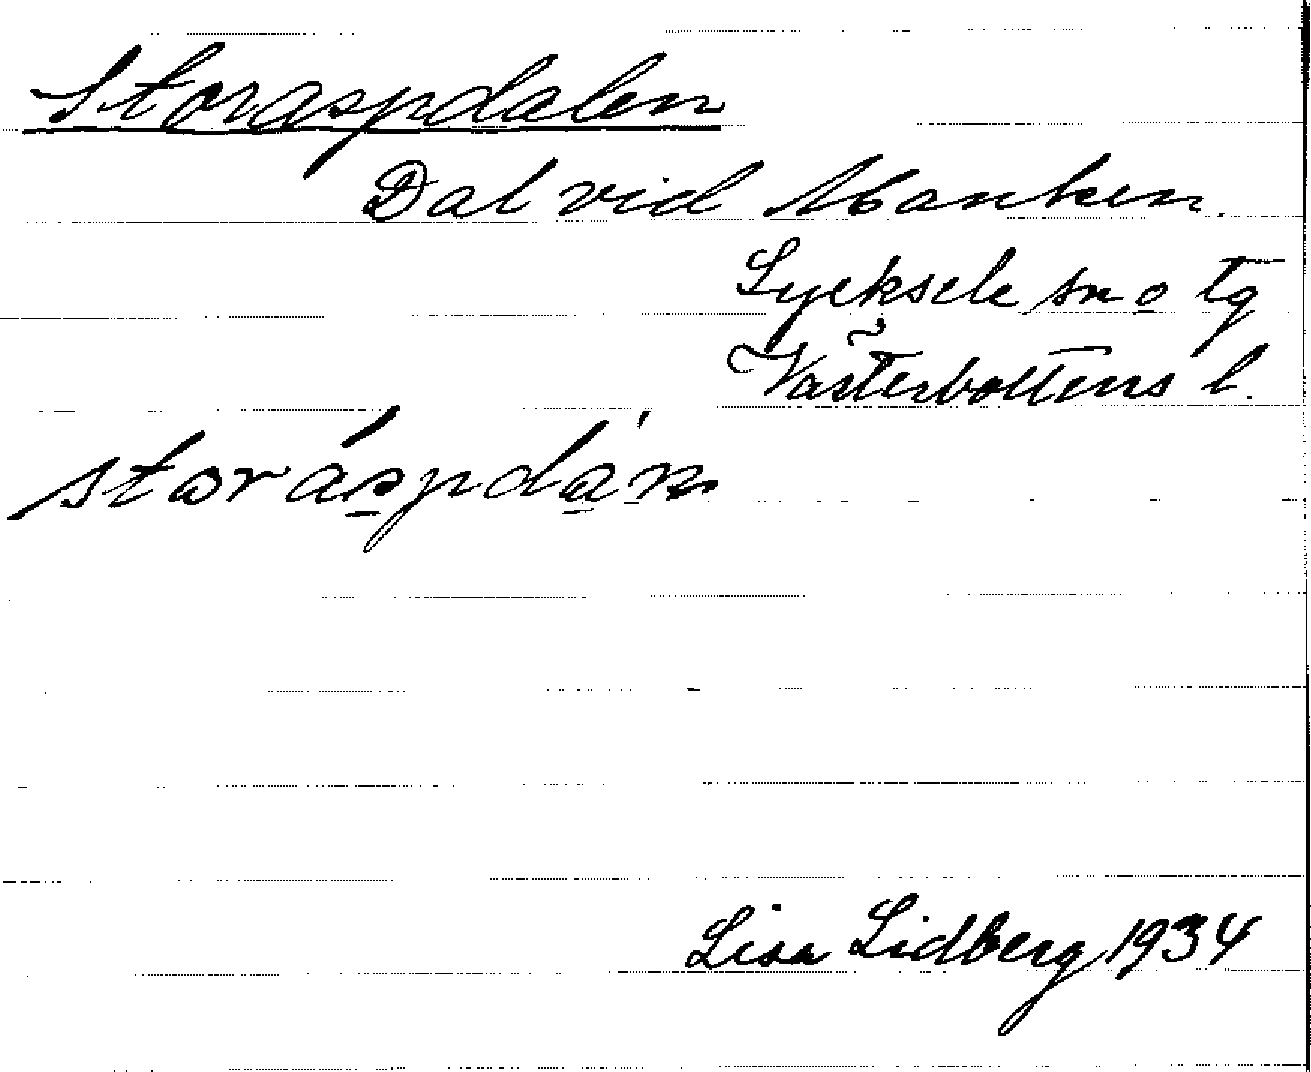 Storaspdalen
Dal vid Manken.
Lycksele sn o tg
Västerbottens l.
storáspda'n
Lisa Lidberg 1934